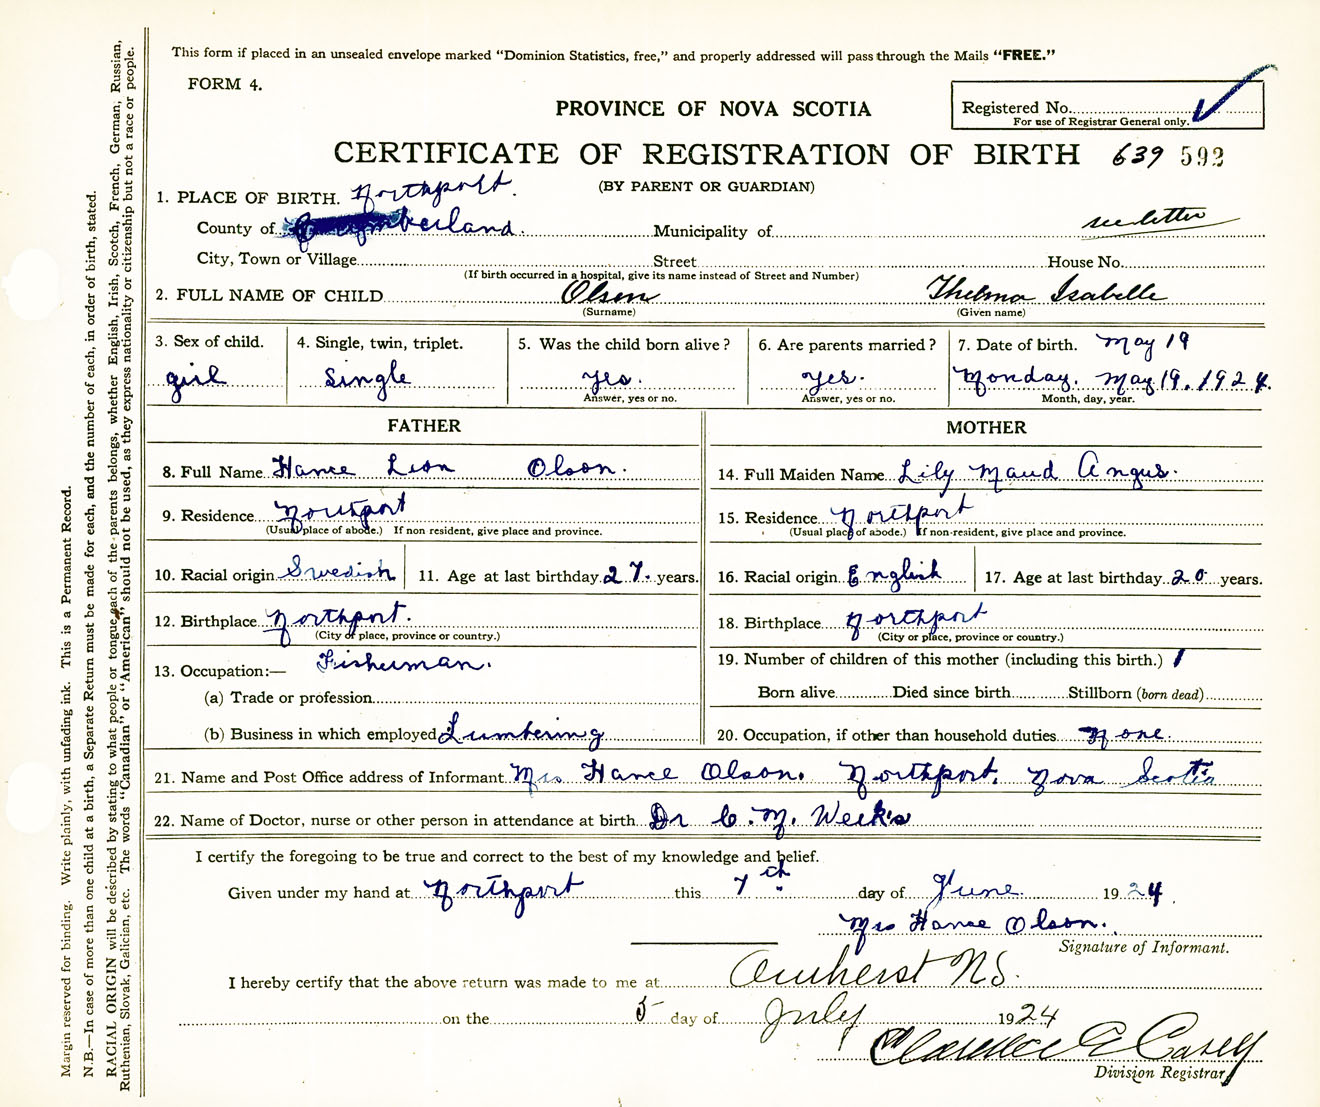 This form if placed in an unsealed envelope marked "Dominion Statistics, free," and properly addressed will pass through the Mails "FREE."
FORM 4.
PROVINCE OF NOVA SCOTIA
Registered No.
For use of Registrar General only.
CERTIFICATE OF REGISTRATION OF BIRTH 639 592
(BY PARENT OR GUARDIAN)
1. PLACE OF BIRTH. Northport.
County of Cumberland. Municipality of see letter
City, Town or Village Street House No.
(If birth occurred in a hospital, give its name instead of Street and Number)
2. FULL NAME OF CHILD Olsen Thelma Isabelle
(Surname) (Given name)
3. Sex of child. girl
4. Single, twin, triplet. Single
5. Was the child born alive? yes.
Answer, yes or no.
6. Are parents married? yes.
Answer, yes or no.
7. Date of birth. May 19
Monday. May 19. 1924.
Month, day, year.
FATHER
8. Full Name Hance Leon Olson.
9. Residence Northport
(Usual place of abode.) If non resident, give place and province.
10. Racial origin Swedish 11. Age at last birthday 27. years.
12. Birthplace Northport.
(City or place, province or country.)
13. Occupation:— Fisherman.
(a) Trade or profession
(b) Business in which employed Lumbering
MOTHER
14. Full Maiden Name Lily Maud Angus.
15. Residence Northport
(Usual place of abode.) If non-resident, give place and province.
16. Racial origin English 17. Age at last birthday 20 years.
18. Birthplace Northport
(City or place, province or country.)
19. Number of children of this mother (including this birth.) 1
Born alive Died since birth Stillborn (born dead)
20. Occupation, if other than household duties None.
21. Name and Post Office address of Informant Mrs Hance Olson. Northport. Nova Scotia
22. Name of Doctor, nurse or other person in attendance at birth Dr C. M. Week's
I certify the foregoing to be true and correct to the best of my knowledge and belief.
Given under my hand at Northport this 7th day of June. 1924.
Mrs Hance Olson.
Signature of Informant.
I hereby certify that the above return was made to me at Amherst N.S.
on the 5 day of July 1924
Clarence E Casey
Division Registrar
Margin reserved for binding. Write plainly, with unfading ink. This is a Permanent Record.
N.B.—In case of more than one child at a birth, a Separate Return must be made for each, and the number of each, in order of birth, stated.
RACIAL ORIGIN will be described by stating to what people or tongue each of the parents belongs, whether English, Irish, Scotch, French, German, Russian,
Ruthenian, Slovak, Galician, etc. The words "Canadian" or "American" should not be used, as they express nationality or citizenship but not a race or people.